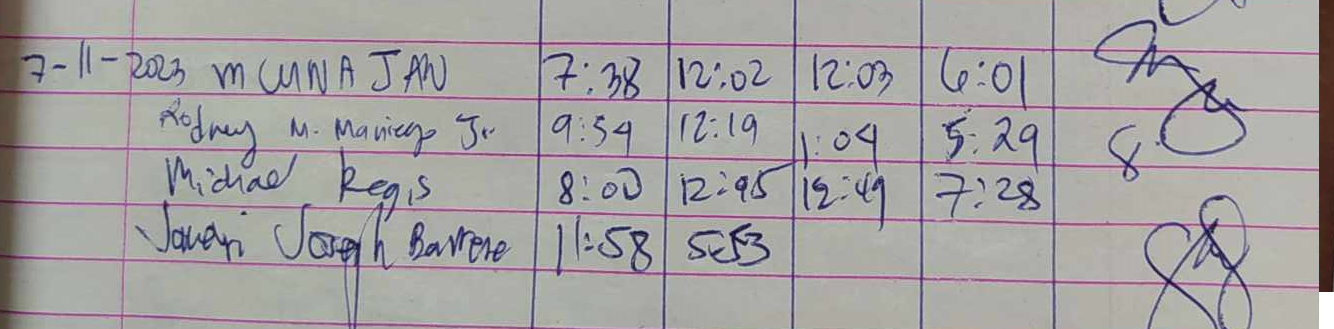 7-11-2023 MCUNA JAN 7:38 12:02 12:03 6:01
Rodney M. Maniego Jr. 9:54 12:19 1:04 5:29 8
Michael Regis 8:00 12:45 12:49 7:28
Joseph 11:58 5:53